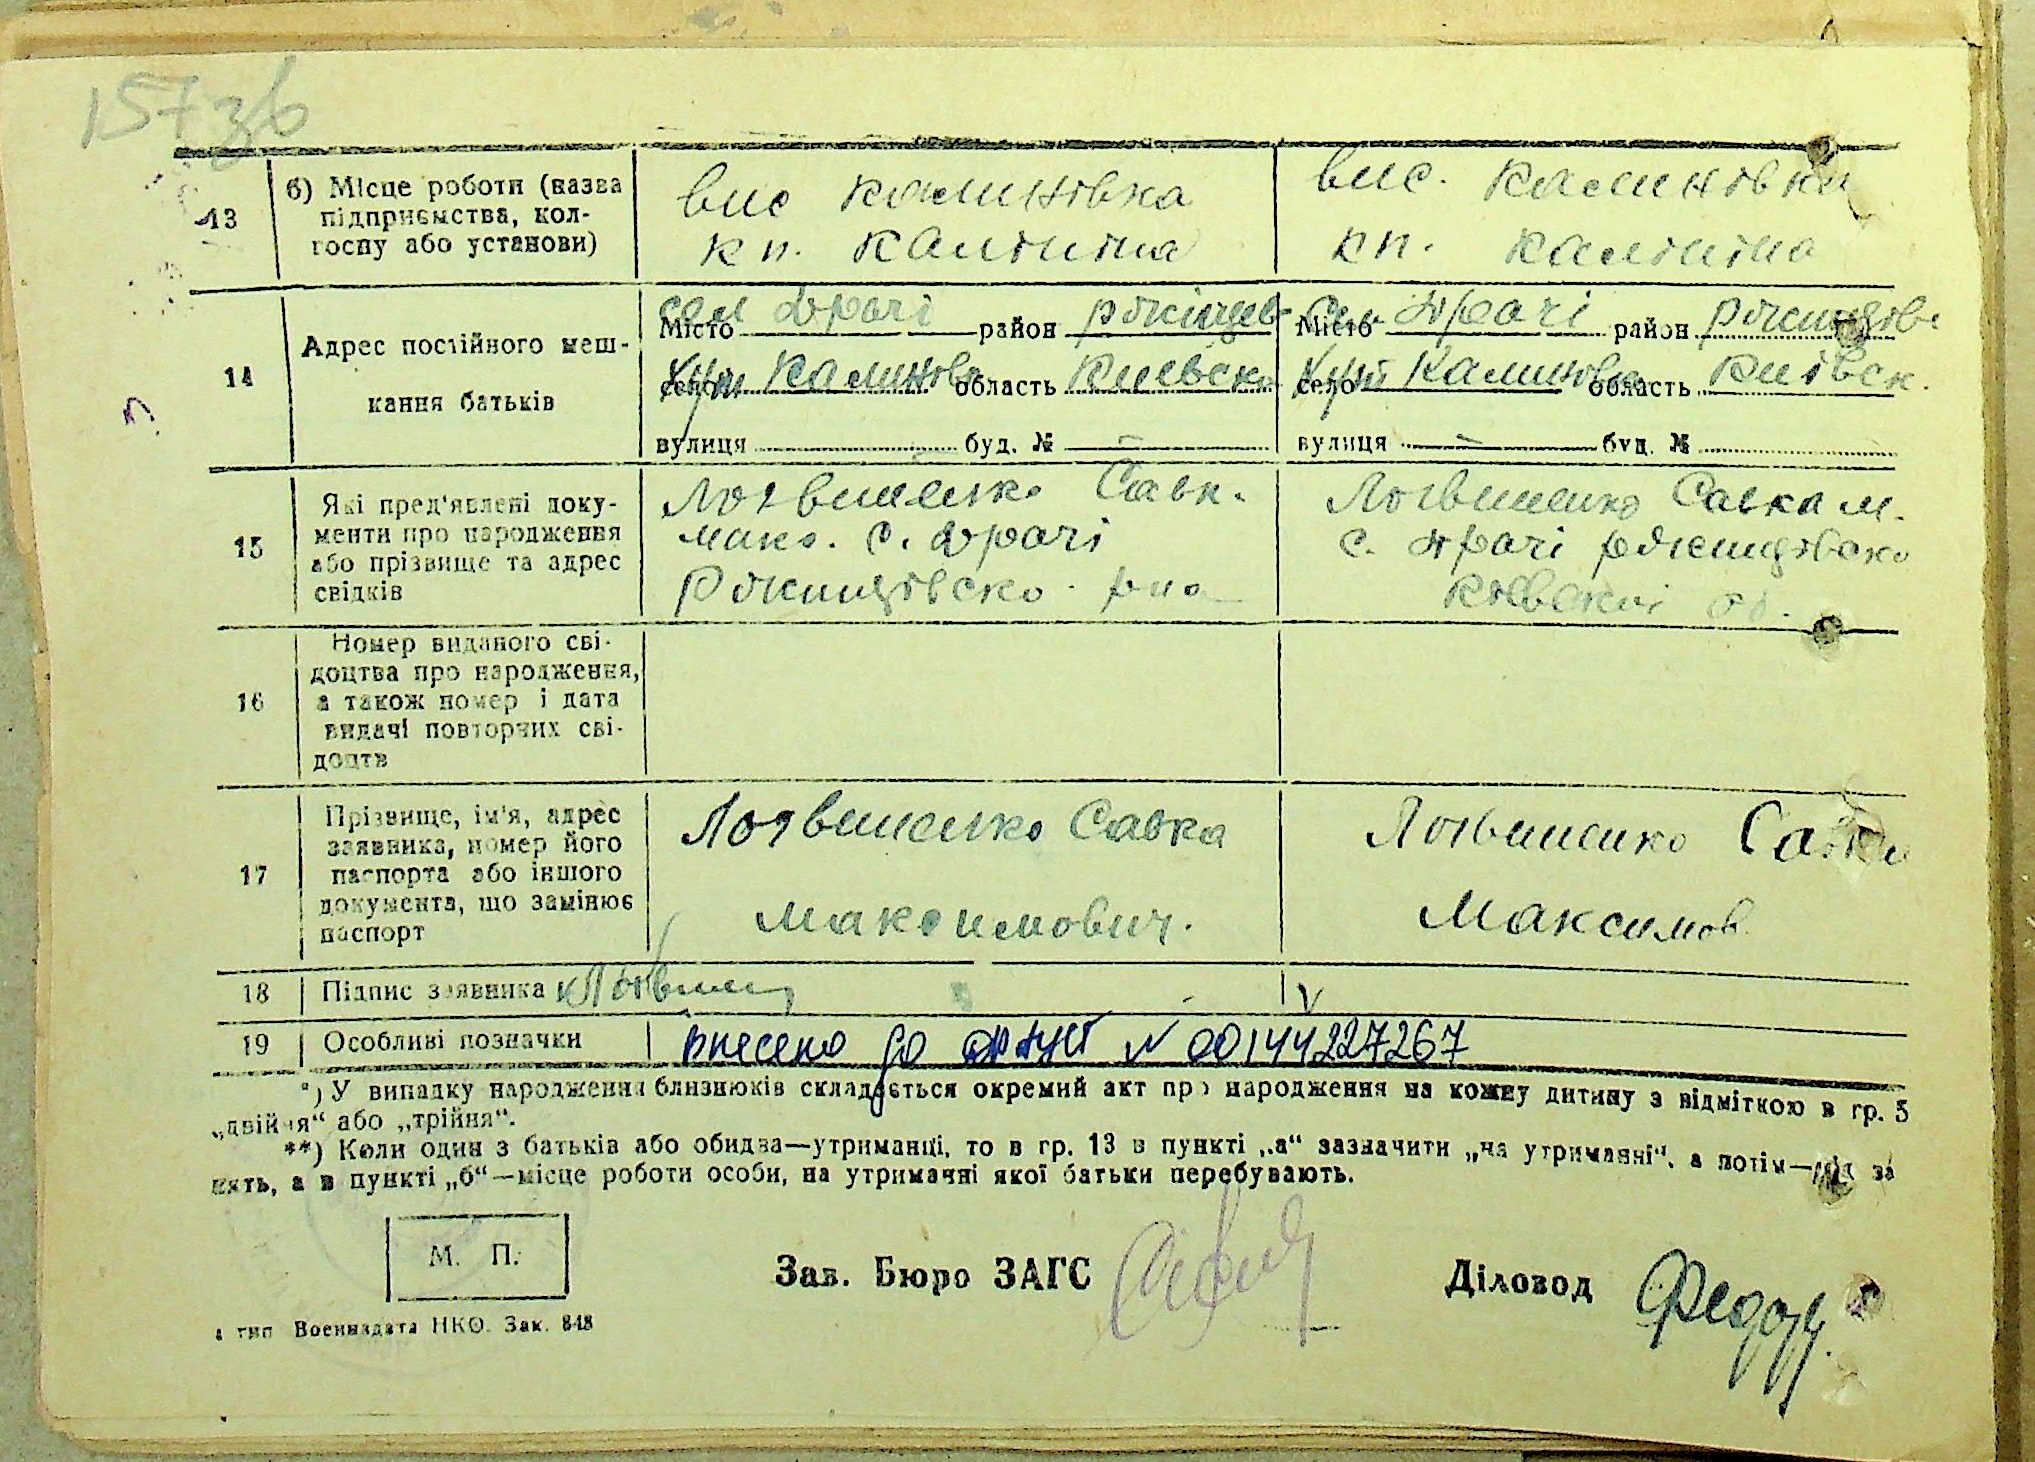 157 зв
13
б) Місце роботи (назва
підприємства, кол-
госпу або установи)
вис Калинівка
кп. Калініна
вис. Калинівка
кп. Калініна
14
Адрес постійного меш-
кання батьків
Місто сел Драчі район
село Хут Калинівка область Киевск
вулиця буд. № —
Місто Сел Драчі район
село Хут Калинівка область Київск.
вулиця — буд. №
15
Які пред'явлені доку-
менти про народження
або прізвище та адрес
свідків
Логвиненко Савк.
Макс. с. Драчі
Логвиненко Савка М.
с. Драчі
16
Номер виданого сві-
доцтва про народження,
а також номер і дата
видачі повторних сві-
доцтв
17
Прізвище, ім'я, адрес
заявника, номер його
паспорта або іншого
документа, що замінює
паспорт
Логвиненко Савка
Максимович.
Логвиненко Савка
Максимов.
18
Підпис заявника
19
Особливі позначки
внесено до ДРАЦСГ № 00144227267
*) У випадку народження близнюків складається окремий акт про народження на кожну дитину з відміткою в гр. 5
„двійня“ або „трійня“.
**) Коли один з батьків або обидва—утриманці, то в гр. 13 в пункті „а“ зазначити „на утриманні“, а потім—рід за
нять, а в пункті „б“—місце роботи особи, на утриманні якої батьки перебувають.
М. П.
Зав. Бюро ЗАГС
Діловод
4 тип Воениздата НКО. Зак. 848